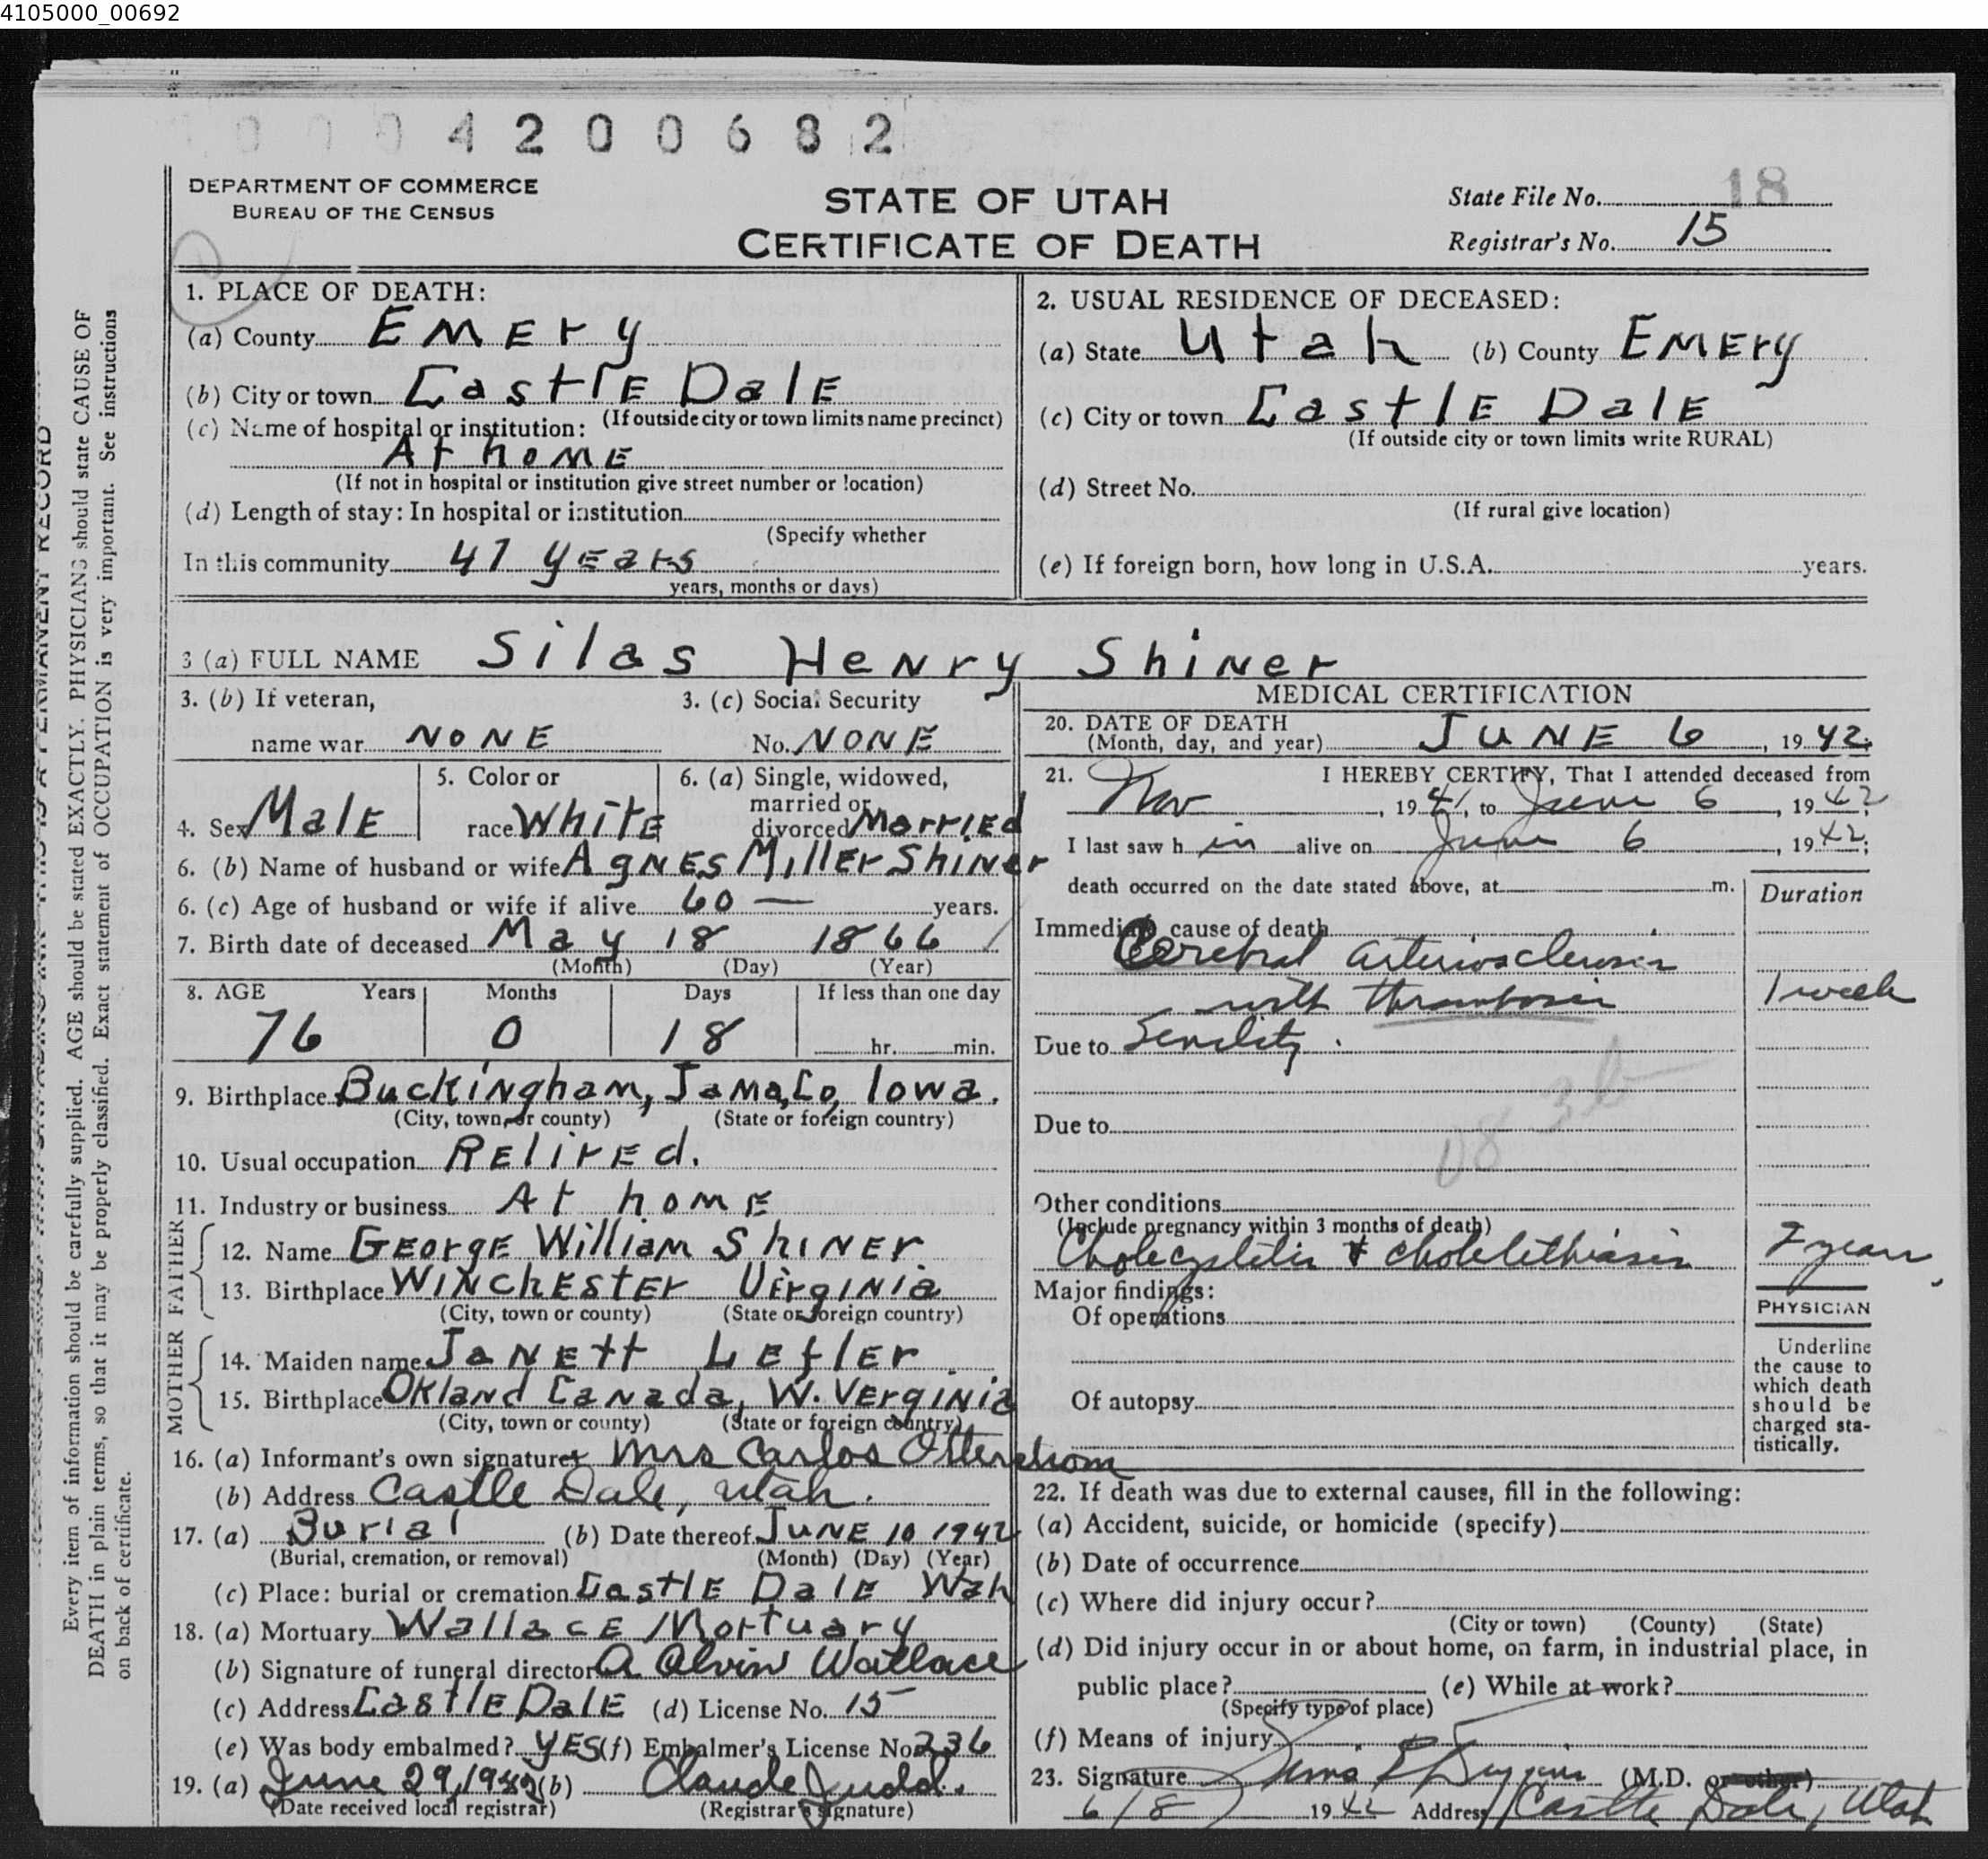 4105000_00692
0004200682
DEPARTMENT OF COMMERCE
BUREAU OF THE CENSUS
STATE OF UTAH
CERTIFICATE OF DEATH
State File No. 18
Registrar's No. 15
Every item of information should be carefully supplied. AGE should be stated EXACTLY. PHYSICIANS should state CAUSE OF
DEATH in plain terms, so that it may be properly classified. Exact statement of OCCUPATION is very important. See instructions
on back of certificate.
1. PLACE OF DEATH:
(a) County Emery
(b) City or town Castle Dale
(If outside city or town limits name precinct)
(c) Name of hospital or institution:
At home
(If not in hospital or institution give street number or location)
(d) Length of stay: In hospital or institution
(Specify whether
In this community 47 years
years, months or days)
2. USUAL RESIDENCE OF DECEASED:
(a) State Utah (b) County Emery
(c) City or town Castle Dale
(If outside city or town limits write RURAL)
(d) Street No.
(If rural give location)
(e) If foreign born, how long in U.S.A. years.
3 (a) FULL NAME Silas Henry Shiner
3. (b) If veteran, 3. (c) Social Security
name war NONE No. NONE
4. Sex Male 5. Color or race White 6. (a) Single, widowed, married or divorced Married
6. (b) Name of husband or wife Agnes Miller Shiner
6. (c) Age of husband or wife if alive 60 — years.
7. Birth date of deceased May 18 1866
(Month) (Day) (Year)
8. AGE Years Months Days If less than one day
76 0 18 hr. min.
9. Birthplace Buckingham, Tama, Co, Iowa.
(City, town, or county) (State or foreign country)
10. Usual occupation Retired.
11. Industry or business At home
FATHER
12. Name George William Shiner
13. Birthplace Winchester Virginia
(City, town or county) (State or foreign country)
MOTHER
14. Maiden name Janett Lefler
15. Birthplace Okland Canada, W. Verginia
(City, town or county) (State or foreign country)
16. (a) Informant's own signature Mrs Carlos Otterstrom
(b) Address Castle Dale, Utah.
17. (a) Burial (b) Date thereof June 10 1942
(Burial, cremation, or removal) (Month) (Day) (Year)
(c) Place: burial or cremation Castle Dale Utah
18. (a) Mortuary Wallace Mortuary
(b) Signature of funeral director A Alvin Wallace
(c) Address Castle Dale (d) License No. 15
(e) Was body embalmed? Yes (f) Embalmer's License No 236
19. (a) June 29, 1942 (b) Claude Judd.
(Date received local registrar) (Registrar's signature)
MEDICAL CERTIFICATION
20. DATE OF DEATH
(Month, day, and year) June 6, 1942
21. I HEREBY CERTIFY, That I attended deceased from
Nov, 1941, to June 6, 1942;
I last saw him alive on June 6, 1942;
death occurred on the date stated above, at m. Duration
Immediate cause of death
Cerebral arteriosclerosis
with thrombosis 1 week
Due to Senility.
Due to
Other conditions
(Include pregnancy within 3 months of death)
Cholecystitis & cholelithiasis 7 years
Major findings:
Of operations
Of autopsy
PHYSICIAN
Underline
the cause to
which death
should be
charged sta-
tistically.
22. If death was due to external causes, fill in the following:
(a) Accident, suicide, or homicide (specify)
(b) Date of occurrence
(c) Where did injury occur?
(City or town) (County) (State)
(d) Did injury occur in or about home, on farm, in industrial place, in
public place? (e) While at work?
(Specify type of place)
(f) Means of injury
23. Signature (M.D. or other)
6/8/ 1942 Address Castle Dale, Utah